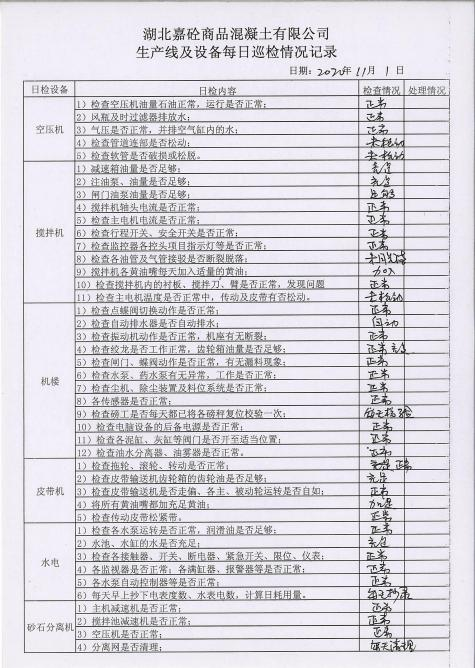 湖北嘉砼商品混凝土有限公司
生产线及设备每日巡检情况记录
日期：2020年11月1日
日检设备 日检内容 检查情况 处理情况
空压机
1）检查空压机油量石油正常，运行是否正常； 正常
2）风瓶及时过滤器排放水； 正常
3）气压是否正常，并排空气缸内的水； 正常
4）检查管道连部是否松动； 未松动
5）检查软管是否破损或松脱。 未松动
搅拌机
1）减速箱油量是否足够； 充足
2）注油泵、油量是否足够； 充足
3）闸门油泵油量是否足够； 足够
4）搅拌机轴头电流是否正常； 正常
5）检查主电机电流是否正常； 正常
6）检查行程开关、安全开关是否正常； 正常
7）检查监控器各控头项目指示灯等是否正常； 正常
8）检查各油管及气管接驳是否断裂脱落；
9）搅拌机各黄油嘴每天加入适量的黄油； 加入
10）检查搅拌机内的衬板、搅拌刀、臂是否正常，发现问题 正常
11）检查主电机温度是否正常中，传动及皮带有否松动。 未松动
机楼
1）检查点蝶阀切换动作是否正常； 正常
2）检查自动排水器是否自动排水； 自动
3）检查振动机动作是否正常，机座有无断裂； 正常
4）检查绞龙是否工作正常，齿轮箱油量是否足够； 正常 充足
5）检查闸门、蝶阀动作是否正常，有无漏料现象； 正常
6）检查水泵、药水泵有无异常，工作是否正常； 正常
7）检查尘机、除尘装置及料位系统是否正常； 正常
8）各传感器是否正常； 正常
9）检查磅工是否每天都已将各磅秤复位校验一次； 每天校验
10）检查电脑设备的后备电源是否正常； 正常
11）检查各泥缸、灰缸等阀门是否开至适当位置； 正常
12）检查油水分离器、油雾器是否正常。 正常
皮带机
1）检查拖轮、滚轮、转动是否正常； 正常
2）检查皮带输送机齿轮箱的齿轮油是否足够； 充足
3）检查皮带输送机是否走偏、各主、被动轮运转是否自如； 正常
4）将所有黄油嘴都加充足黄油； 加足
5）检查传动皮带松紧带。 正常
水电
1）检查各水泵运转是否正常，润滑油是否足够； 正常
2）水池、水缸的水是否充足； 充足
3）检查各接触器、开关、断电器、紧急开关、限位、仪表； 正常
4）各监视器是否正常；各满缸器、报警器等是否正常； 正常
5）各水泵自动控制器等是否正常； 正常
6）每天早上抄下电表度数、水表电数，计算日耗用量。 每天抄录
砂石分离机
1）主机减速机是否正常； 正常
2）搅拌池减速机是否正常； 正常
3）空压机是否正常； 正常
4）分离网是否清理； 每天清理